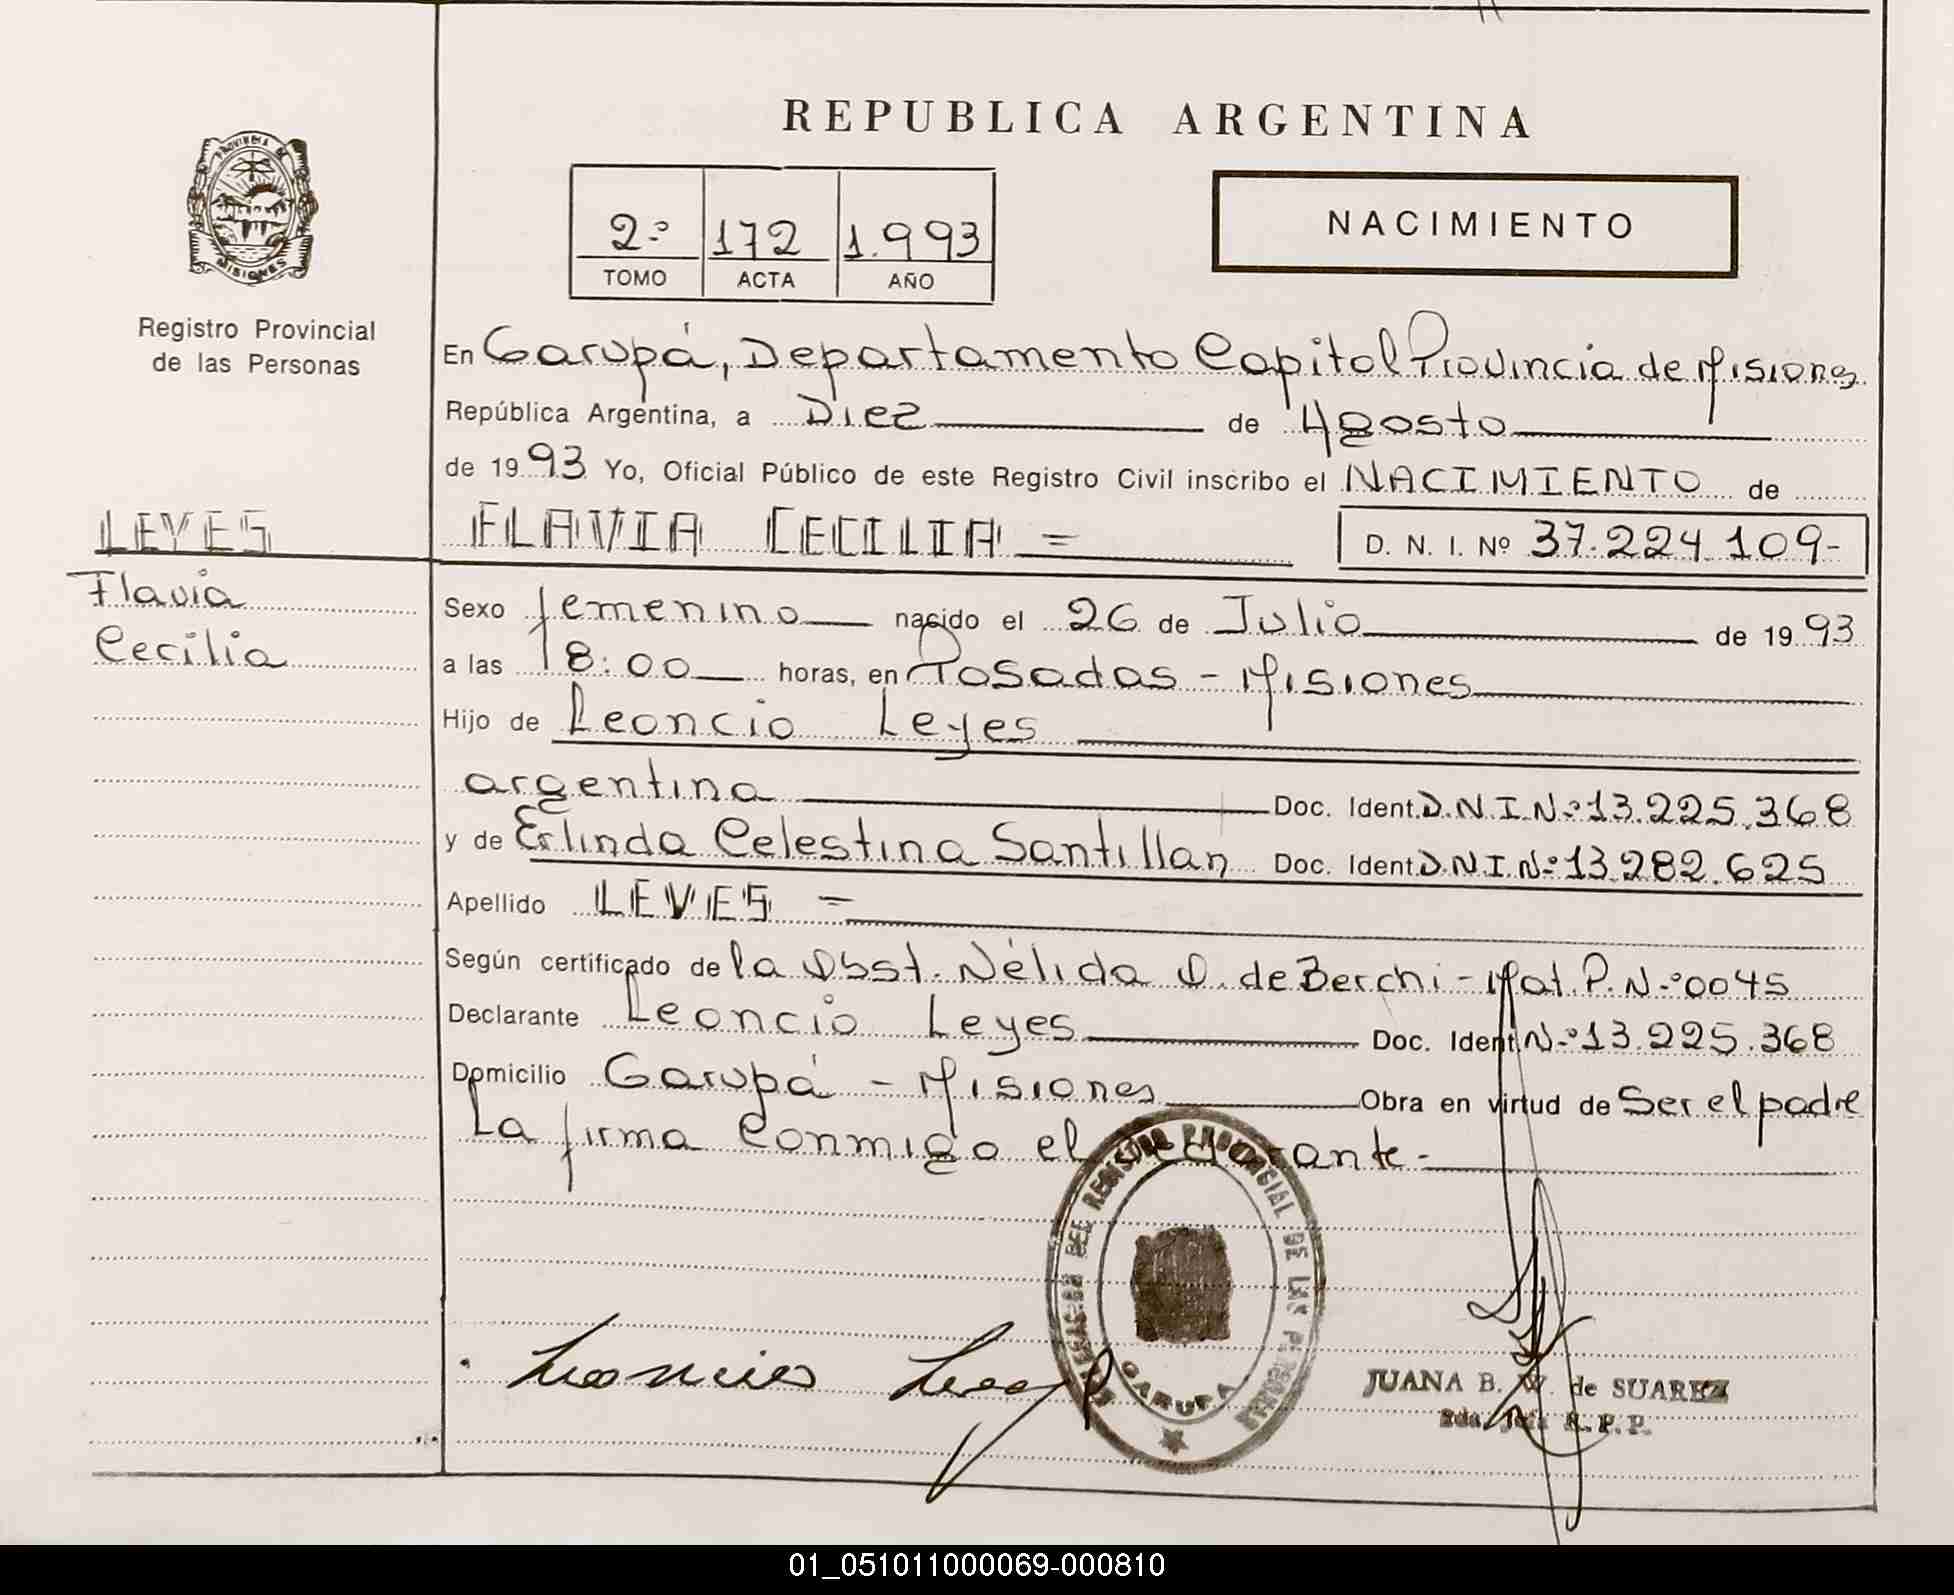 REPUBLICA ARGENTINA
PROVINCIA DE
MISIONES
Registro Provincial
de las Personas
2º 172 1.993
TOMO ACTA AÑO
NACIMIENTO
En Garupá, Departamento Capital Provincia de Misiones
República Argentina, a Diez de Agosto
de 1993 Yo, Oficial Público de este Registro Civil inscribo el NACIMIENTO de
LEYES
Flavia
Cecilia
FLAVIA CECILIA = D. N. I. Nº 37.224.109-
Sexo femenino nacido el 26 de Julio de 1993
a las 18:00 horas, en Posadas - Misiones
Hijo de Leoncio Leyes
argentina Doc. Ident. D.N.I.Nº 13.225.368
y de Erlinda Celestina Santillan Doc. Ident. D.N.I.Nº 13.282.625
Apellido LEYES =
Según certificado de la Obst. Nélida O. de Berchi - Mat. P. Nº 0045
Declarante Leoncio Leyes Doc. Ident. Nº 13.225.368
Domicilio Garupá - Misiones Obra en virtud de Ser el padre
La firma conmigo el declarante-
DEL REGISTRO PROVINCIAL DE LAS PERSONAS
GARUPA
Leoncio Leyes
JUANA B. W. de SUAREZ
2da. Jefa R. P. P.
01_051011000069-000810